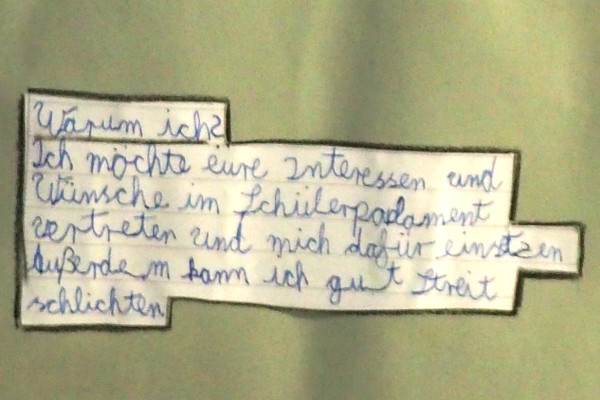 Warum ich?
Ich möchte eure Interessen und
Wünsche im Schülerpadament
vertreten und mich dafür einstzen
Außerdem kann ich gut Streit
schlichten